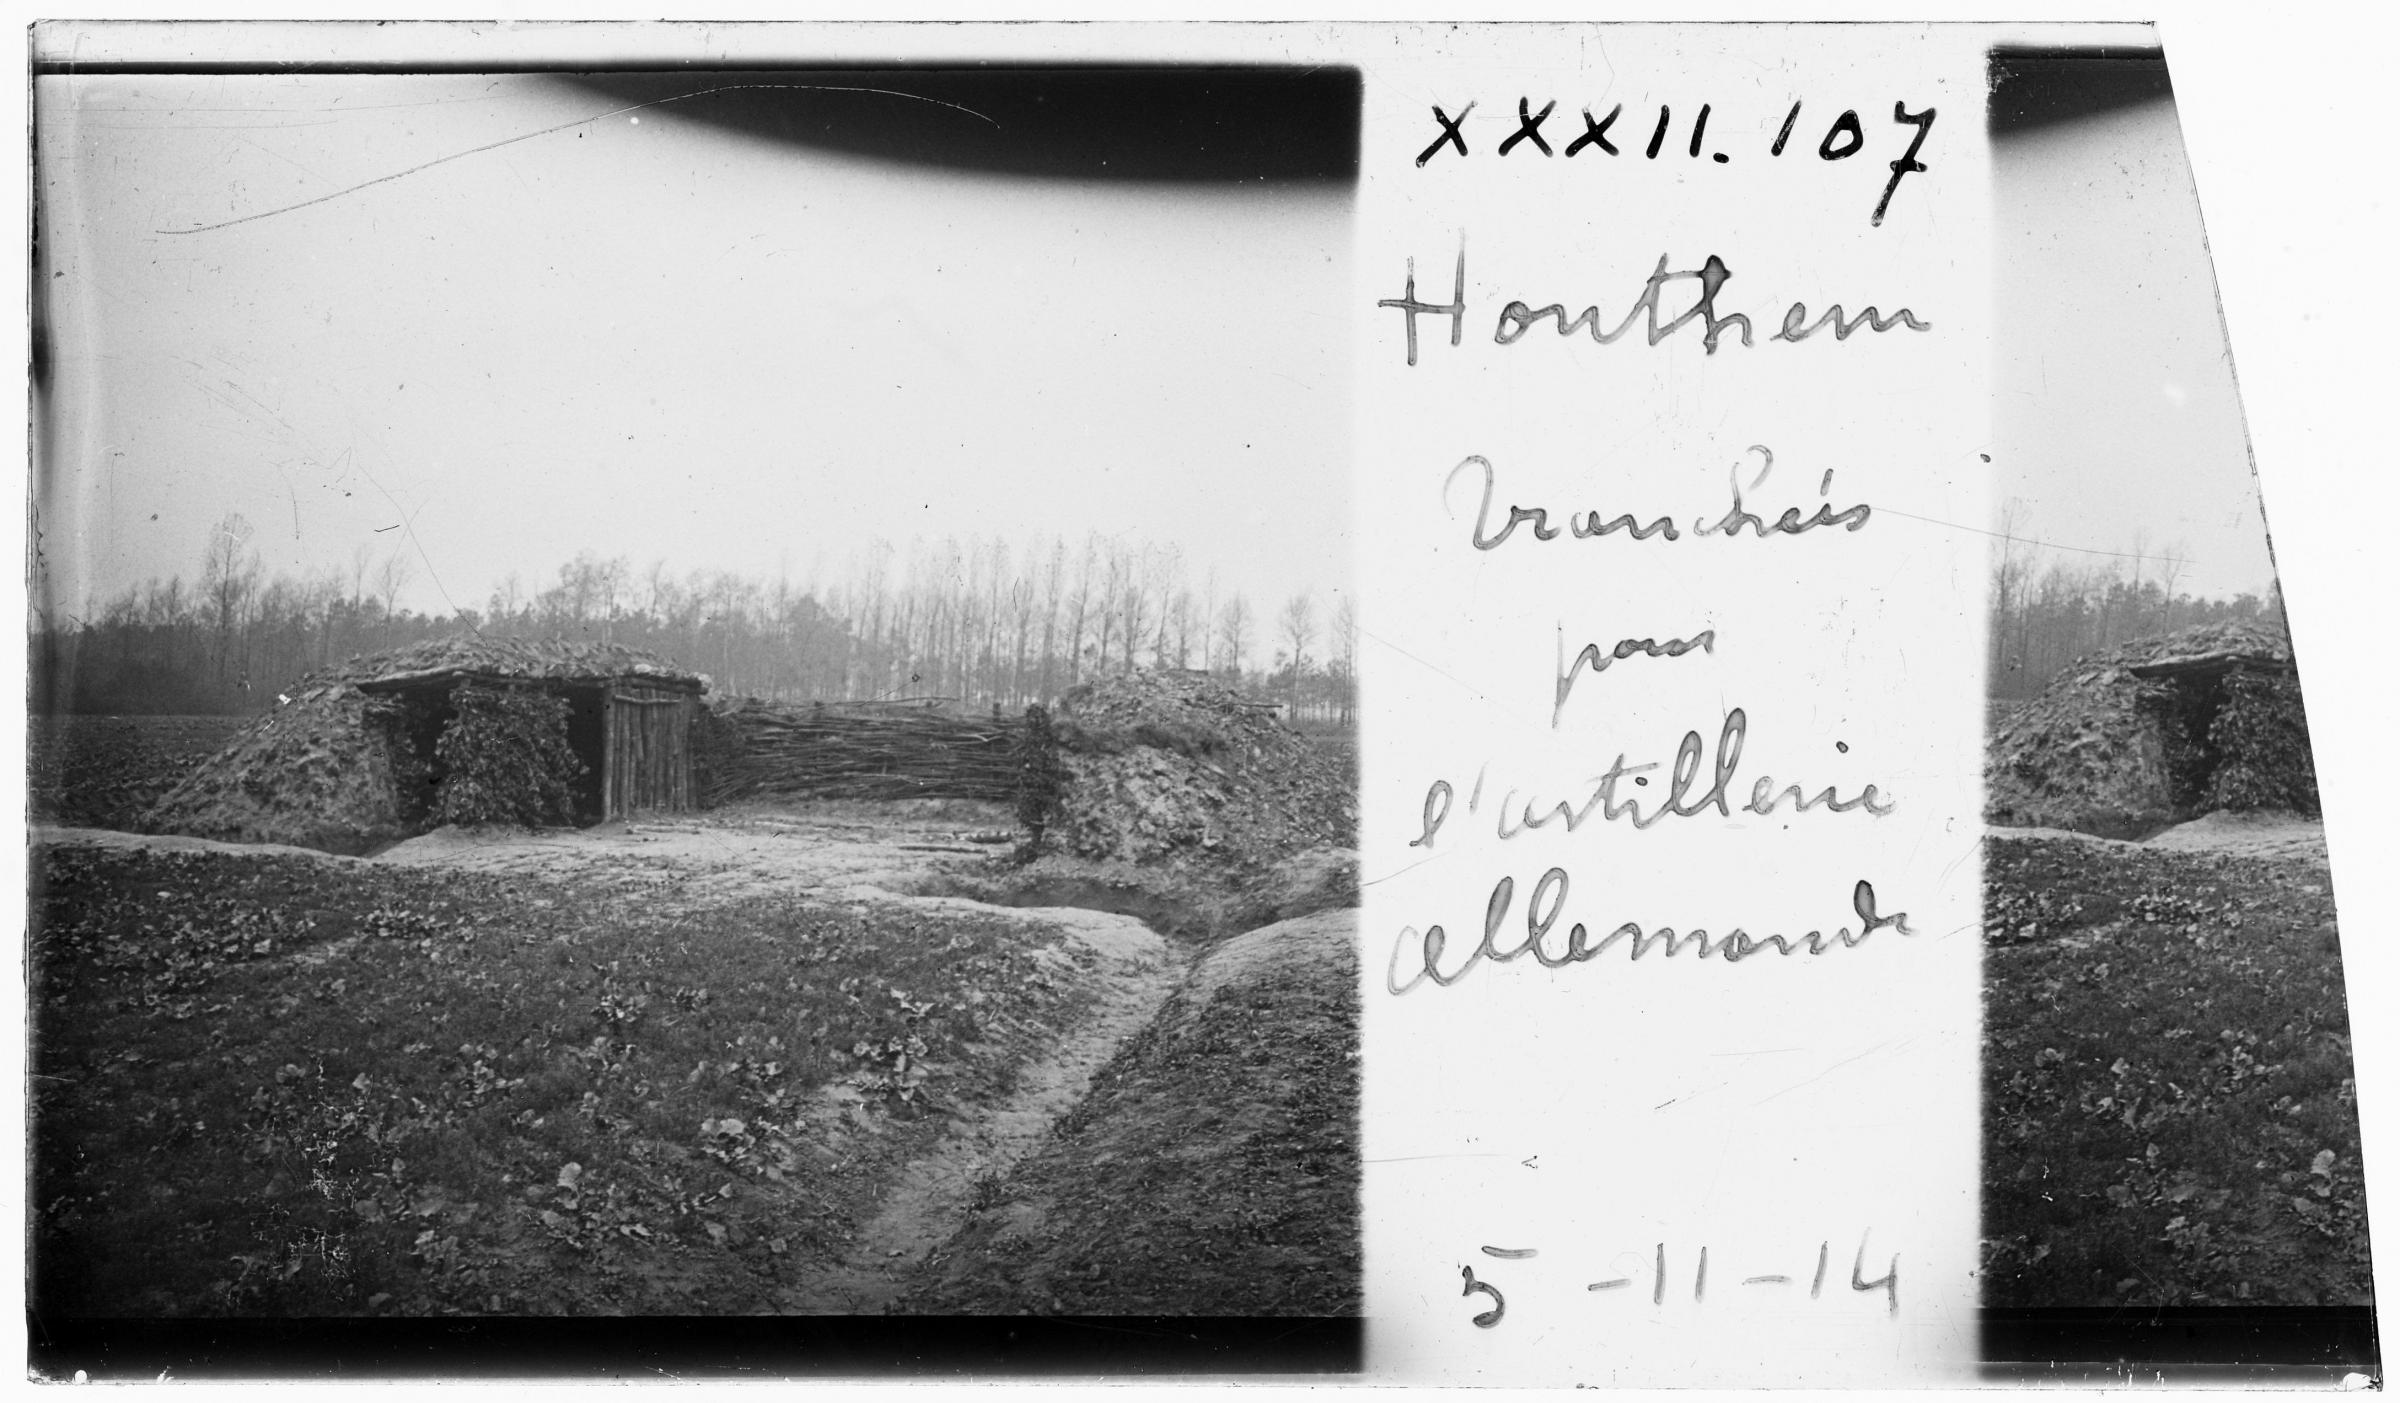 XXXII.107
Houthem
Tranchées
pour
l'artillerie
allemande
5-11-14